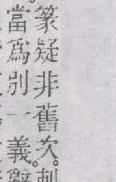 篆疑非舊次。刺
當爲別一義。